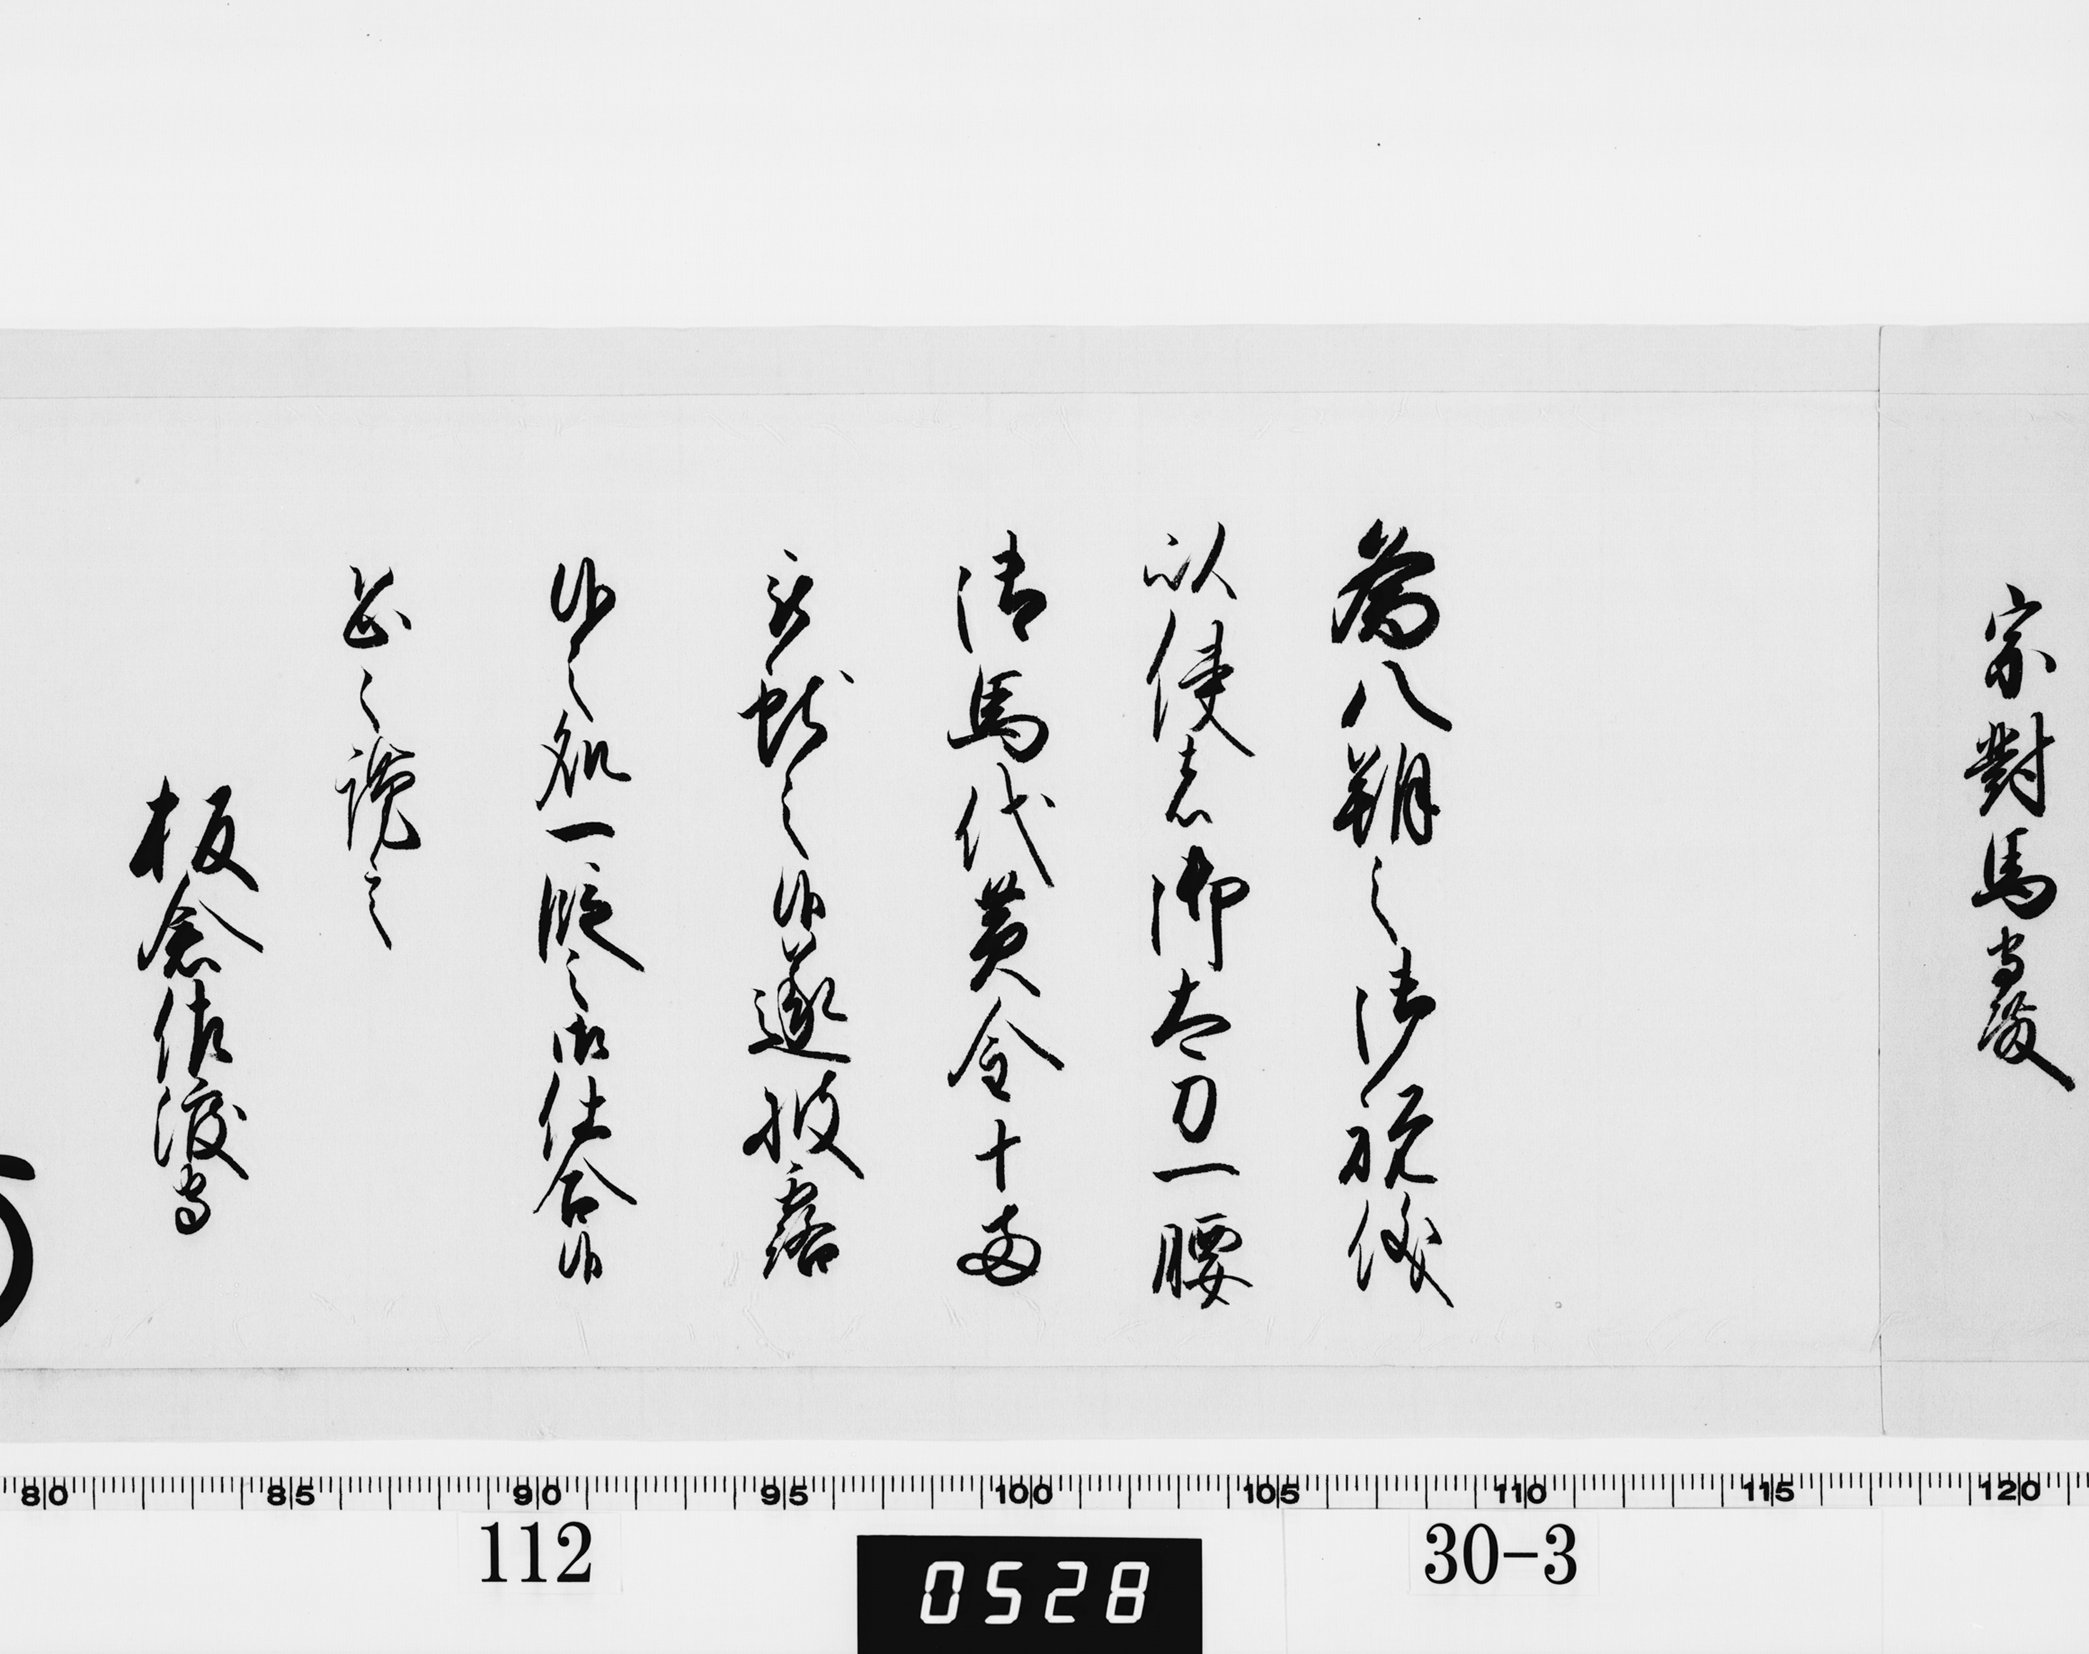 宗對馬守殿
為八朔之御祝儀
以使者御太刀一腰
御馬代黄金十両
被献之候遂披露
候之処一段之御仕合候
恐々謹言
板倉佐渡守
80 85 90 95 100 105 110 115 120
112
0528
30-3